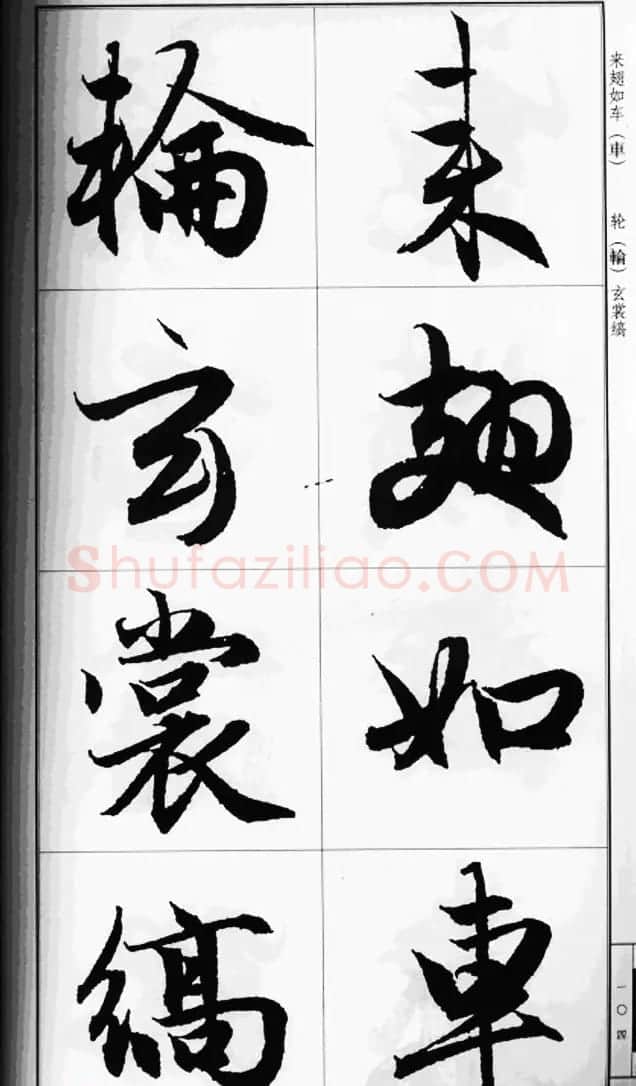 来翅如车（車）　轮（輪）玄裳缟
来翅如車
輪玄裳縞
一〇四
Shufaziliao.COM